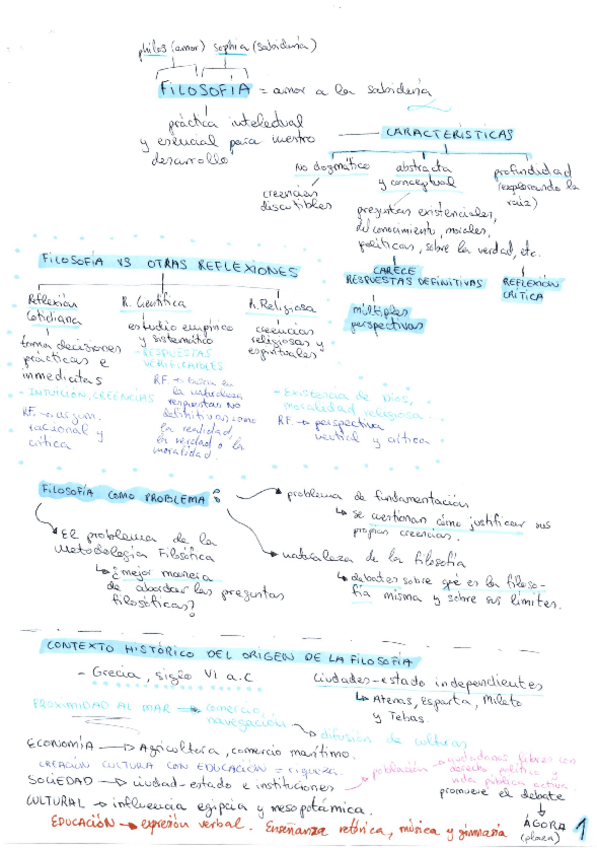 philos (amor) sophia (sabiduría)
FILOSOFÍA = amor a la sabiduría
práctica intelectual
y esencial para nuestro
desarrollo
CARACTERÍSTICAS
No dogmático
creencias
discutibles
abstracta
y conceptual
preguntas existenciales,
del conocimiento, morales,
políticas, sobre la verdad, etc.
profundidad
(explorando la
raíz)
CARECE
RESPUESTAS DEFINITIVAS
múltiples
perspectivas
REFLEXIÓN
CRÍTICA
FILOSOFÍA VS OTRAS REFLEXIONES
Reflexión
Cotidiana
toma decisiones
prácticas e
inmediatas
- INTUICIÓN, CREENCIAS
RF. → argum.
racional y
crítica
R. Científica
estudio empírico
y sistemático
- RESPUESTAS
VERIFICABLES
RF. → busca en
la naturaleza
respuestas NO
definitivas como
la realidad,
la verdad o la
moralidad.
R. Religiosa
creencias
religiosas y
espirituales
- Existencia de Dios,
moralidad religiosa
RF. → perspectiva
y crítica
FILOSOFÍA COMO PROBLEMA:
problema de fundamentación
↳ se cuestionan cómo justificar sus
propias creencias.
El problema de la
Metodología Filósófica
↳ ¿mejor manera
de abordar las preguntas
filosóficas?
naturaleza de la filosofía
↳ debates sobre qué es la filoso-
fía misma y sobre sus límites.
CONTEXTO HISTÓRICO DEL ORIGEN DE LA FILOSOFÍA
- Grecia, siglo VI a.C
Ciudades-estado independientes
↳ Atenas, Esparta, Mileto
y Tebas.
PROXIMIDAD AL MAR → comercio,
navegación
→ difusión de culturas
ECONOMÍA → Agricultura, comercio marítimo.
CREACIÓN CULTURA CON EDUCACIÓN = riqueza.
SOCIEDAD → ciudad-estado e instituciones
→ población → ciudadanos libres con
derecho político y
vida pública activa
promueve el debate
↓
ÁGORA
(plaza)
CULTURAL → influencia egipcia y mesopotámica.
EDUCACIÓN → expresión verbal. Enseñanza retórica, música y gimnasia
1